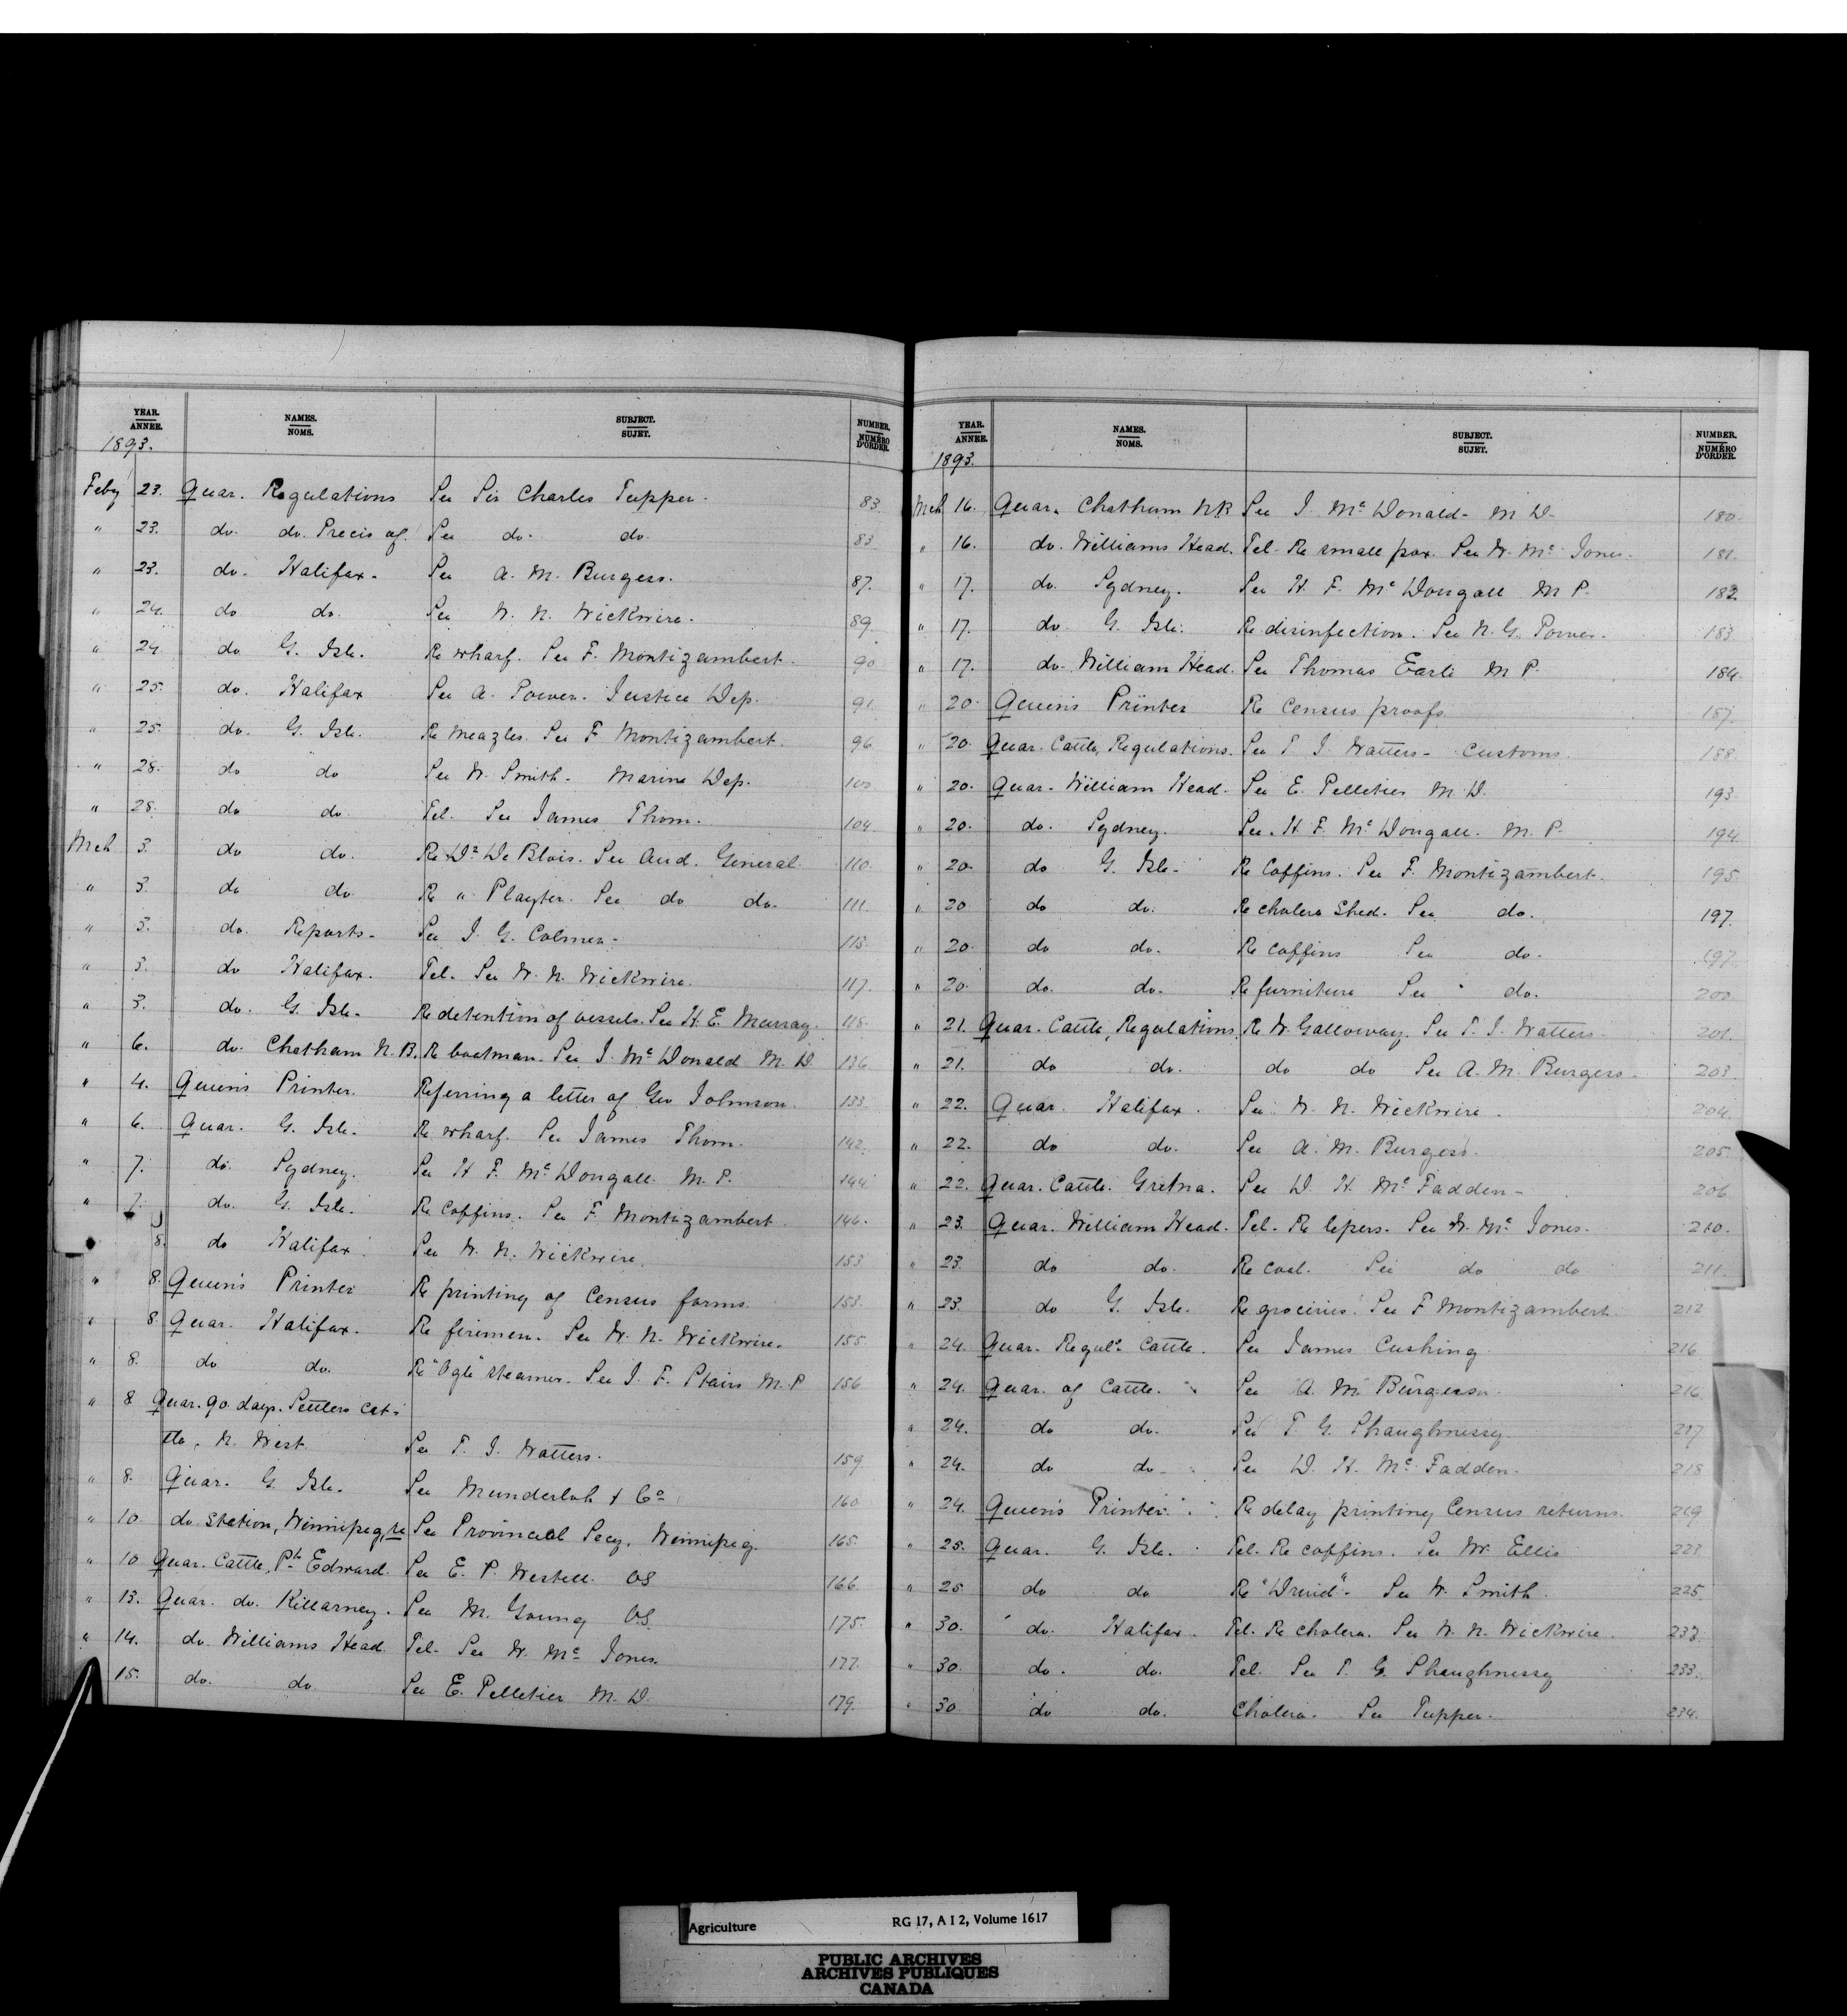 YEAR. NAMES. SUBJECT. NUMBER.
ANNEE. NOMS. SUJET. NUMÉRO D'ORDER.
1893.
Feby 23. Quar. Regulations See Sir Charles Tupper. 83
" 23. do. do. Precis of. See do. do. 83
" 23. do. Halifax. See A. M. Burgess. 87.
" 24. do do. See W. N. Wickwire. 89
" 24 do G. Isle. Re wharf. See F. Montizambert. 90
" 25. do. Halifax See A. Power. Justice Dep. 91
" 25. do. G. Isle. Re meazles. See F Montizambert. 96
" 28. do do See W. Smith. Marine Dep. 100
" 28. do do. Tel. See James Thom. 104
Mch 3. do do. Re Dr De Blois. See Aud. General 110
" 3. do do Re " Playter. See do do. 111
" 3. do. Reports. See J. G. Colmer. 115.
" 3. do Halifax. Tel. See W. N. Wickwire. 117.
" 3. do. G. Isle. Re detention of vessels. See H. E. Murray. 118.
" 6. do. Chatham N.B. Re boatman. See J. Mc Donald M. D 136
" 4. Queen's Printer. Referring a letter of Geo Johnson. 133
" 6. Quar. G. Isle. Re wharf. See James Thom. 142.
" 7. do. Sydney. See H F. Mc Dougall M. P. 144
" 7. do. G. Isle. Re Coffins. See F. Montizambert 146.
8. do Halifax. See W. N. Wickwire. 153
" 8. Queen's Printer Re printing of Census forms. 153.
" 8 Quar. Halifax. Re firemen. See W. N. Wickwire. 155
" 8. do do. Re "Ogle" steamer. See J. F. Stairs M. P 156
" 8 Quar. 90 days. Settlers Cat-
tle, N. West. See T. J. Watters. 159
" 8. Quar. G. Isle. See Munderloh & Co 160
" 10. do. Station, Winnipeg, re See Provincial Secy. Winnipeg. 165.
" 10 Quar. Cattle, Pt Edward. See E. P. Westell. VS 166
" 13. Quar. do. Killarney. See M. Young VS. 175.
" 14. do. Williams Head. Tel. See W. Mc Jones. 177.
15. do. do See E. Pelletier M. D. 179.
YEAR. NAMES. SUBJECT. NUMBER.
ANNEE. NOMS. SUJET. NUMÉRO D'ORDER.
1893.
Mch 16. Quar. Chatham NB See J. Mc Donald. M D. 180.
" 16. do. Williams Head. Tel. Re small pox. See W. Mc Jones. 181.
" 17. do. Sydney. See H F. Mc Dougall M P. 182
" 17. do G. Isle. Re disinfection. See N. G. Power. 183
" 17. do. William Head. See Thomas Earle M. P. 184.
" 20. Queen's Printer Re Census proofs 187.
" 20. Quar. Cattle, Regulations. See T. J. Watters. Customs. 188.
" 20. Quar. William Head. See E. Pelletier M. D. 193.
" 20. do. Sydney. See. H. F. Mc Dougall. M. P. 194.
" 20. do G. Isle. Re Coffins. See F. Montizambert. 195
" 20 do do. Re cholera Shed. See do. 197.
" 20. do do. Re coffins See do. 197.
" 20. do. do. Re furniture See " do. 200
" 21. Quar. Cattle, Regulations. Re W. Galloway. See T. J. Watters 201.
" 21. do do. do do See A. M. Burgess. 203
" 22. Quar. Halifax. See W. N. Wickwire. 204
" 22. do do. See A. M. Burgess. 205
" 22. Quar. Cattle. Gretna. See D. H. Mc Fadden. 206
" 23. Quar. William Head. Tel. Re lepers. See W. Mc Jones. 210.
" 23. do do. Re coal. See do do 211.
" 23. do G. Isle. Re groceries. See F Montizambert. 212
" 24. Quar. Reguls Cattle. See James Cushing 216
" 24. Quar. of Cattle. See A. M. Burgess. 216.
" 24. do do. See T. G. Shaughnessy. 217
" 24. do do. See D. H. Mc Fadden. 218
" 24. Queen's Printer. Re delay printing Census returns. 219
" 25. Quar. G. Isle. Tel. Re coffins. See W. Ellis 223
" 25. do do Re "Druid". See W. Smith. 225
" 30. do. Halifax. Tel. Re cholera. See W. N. Wickwire. 232
" 30. do. do. Tel. See T. G. Shaughnessy 233.
" 30 do do. Cholera. See Tupper. 234.
Agriculture RG 17, A I 2, Volume 1617
PUBLIC ARCHIVES
ARCHIVES PUBLIQUES
CANADA